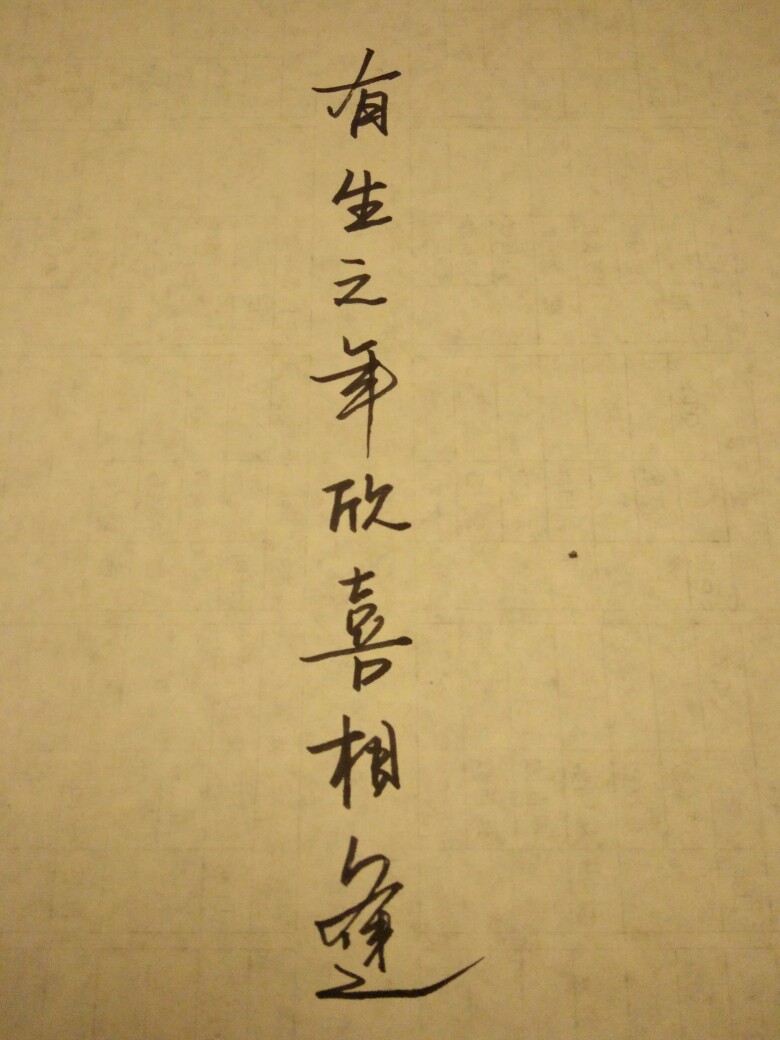 有生之年欣喜相逢